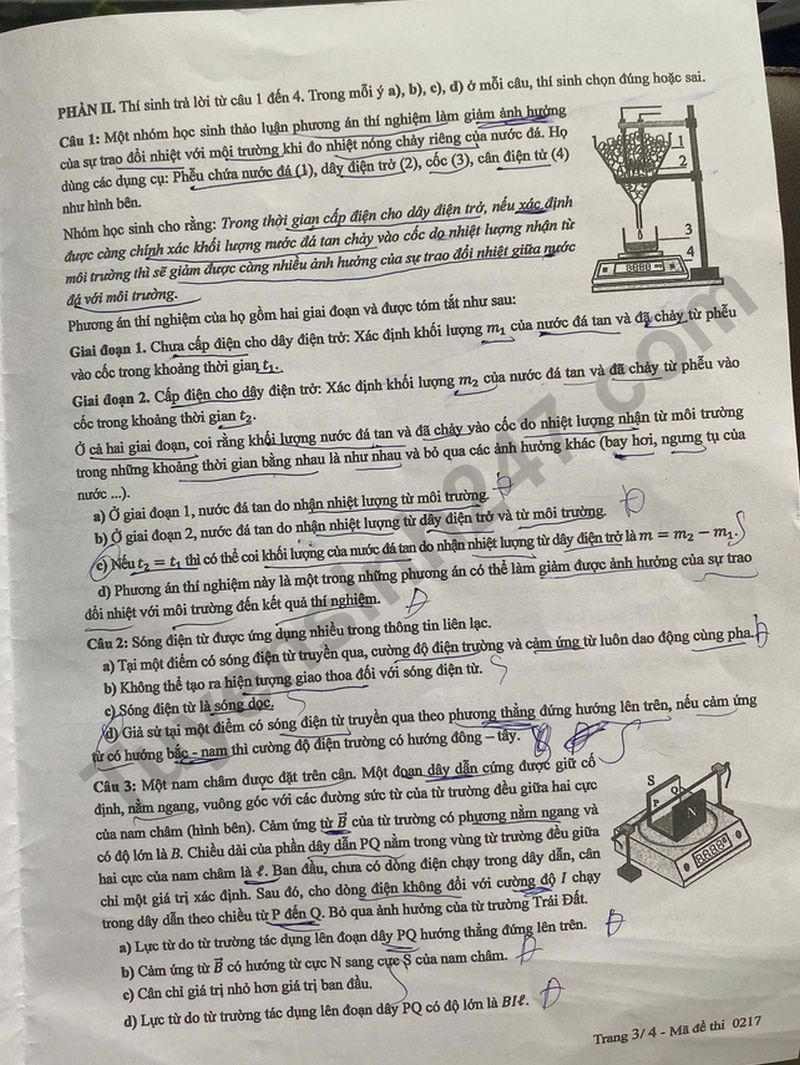 PHẦN II. Thí sinh trả lời từ câu 1 đến 4. Trong mỗi ý a), b), c), d) ở mỗi câu, thí sinh chọn đúng hoặc sai.
Câu 1: Một nhóm học sinh thảo luận phương án thí nghiệm làm giảm ảnh hưởng
của sự trao đổi nhiệt với môi trường khi đo nhiệt nóng chảy riêng của nước đá. Họ
dùng các dụng cụ: Phễu chứa nước đá (1), dây điện trở (2), cốc (3), cân điện tử (4)
như hình bên.
1
2
3
4
Nhóm học sinh cho rằng: Trong thời gian cấp điện cho dây điện trở, nếu xác định
được càng chính xác khối lượng nước đá tan chảy vào cốc do nhiệt lượng nhận từ
môi trường thì sẽ giảm được càng nhiều ảnh hưởng của sự trao đổi nhiệt giữa nước
đá với môi trường.
Phương án thí nghiệm của họ gồm hai giai đoạn và được tóm tắt như sau:
Giai đoạn 1. Chưa cấp điện cho dây điện trở: Xác định khối lượng m₁ của nước đá tan và đã chảy từ phễu
vào cốc trong khoảng thời gian t₁.
Giai đoạn 2. Cấp điện cho dây điện trở: Xác định khối lượng m₂ của nước đá tan và đã chảy từ phễu vào
cốc trong khoảng thời gian t₂.
Ở cả hai giai đoạn, coi rằng khối lượng nước đá tan và đã chảy vào cốc do nhiệt lượng nhận từ môi trường
trong những khoảng thời gian bằng nhau là như nhau và bỏ qua các ảnh hưởng khác (bay hơi, ngưng tụ của
nước ...).
a) Ở giai đoạn 1, nước đá tan do nhận nhiệt lượng từ môi trường. Đ
b) Ở giai đoạn 2, nước đá tan do nhận nhiệt lượng từ dây điện trở và từ môi trường. Đ
c) Nếu t₂ = t₁ thì có thể coi khối lượng của nước đá tan do nhận nhiệt lượng từ dây điện trở là m = m₂ − m₁. S
d) Phương án thí nghiệm này là một trong những phương án có thể làm giảm được ảnh hưởng của sự trao
đổi nhiệt với môi trường đến kết quả thí nghiệm. Đ
Câu 2: Sóng điện từ được ứng dụng nhiều trong thông tin liên lạc.
a) Tại một điểm có sóng điện từ truyền qua, cường độ điện trường và cảm ứng từ luôn dao động cùng pha. Đ
b) Không thể tạo ra hiện tượng giao thoa đối với sóng điện từ. S
c) Sóng điện từ là sóng dọc. S
d) Giả sử tại một điểm có sóng điện từ truyền qua theo phương thẳng đứng hướng lên trên, nếu cảm ứng
từ có hướng bắc - nam thì cường độ điện trường có hướng đông – tây. S
Câu 3: Một nam châm được đặt trên cân. Một đoạn dây dẫn cứng được giữ cố
định, nằm ngang, vuông góc với các đường sức từ của từ trường đều giữa hai cực
của nam châm (hình bên). Cảm ứng từ B⃗ của từ trường có phương nằm ngang và
có độ lớn là B. Chiều dài của phần dây dẫn PQ nằm trong vùng từ trường đều giữa
hai cực của nam châm là ℓ. Ban đầu, chưa có dòng điện chạy trong dây dẫn, cân
chỉ một giá trị xác định. Sau đó, cho dòng điện không đổi với cường độ I chạy
trong dây dẫn theo chiều từ P đến Q. Bỏ qua ảnh hưởng của từ trường Trái Đất.
S
P
Q
N
a) Lực từ do từ trường tác dụng lên đoạn dây PQ hướng thẳng đứng lên trên. Đ
b) Cảm ứng từ B⃗ có hướng từ cực N sang cực S của nam châm. Đ
c) Cân chỉ giá trị nhỏ hơn giá trị ban đầu. S
d) Lực từ do từ trường tác dụng lên đoạn dây PQ có độ lớn là BIℓ. Đ
Trang 3/ 4 - Mã đề thi 0217
Tuyensinh247.com